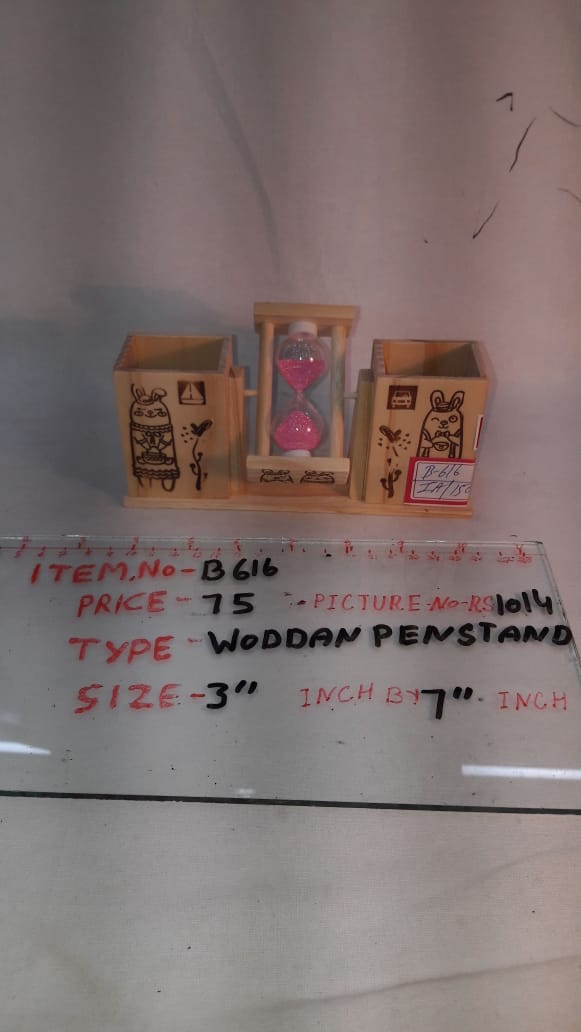 B-616
IA/150
ITEM.No-B616
PRICE-75 PICTURE-No-RS1014
TYPE-WODDAN PENSTAND
SIZE-3" INCH BY 7". INCH